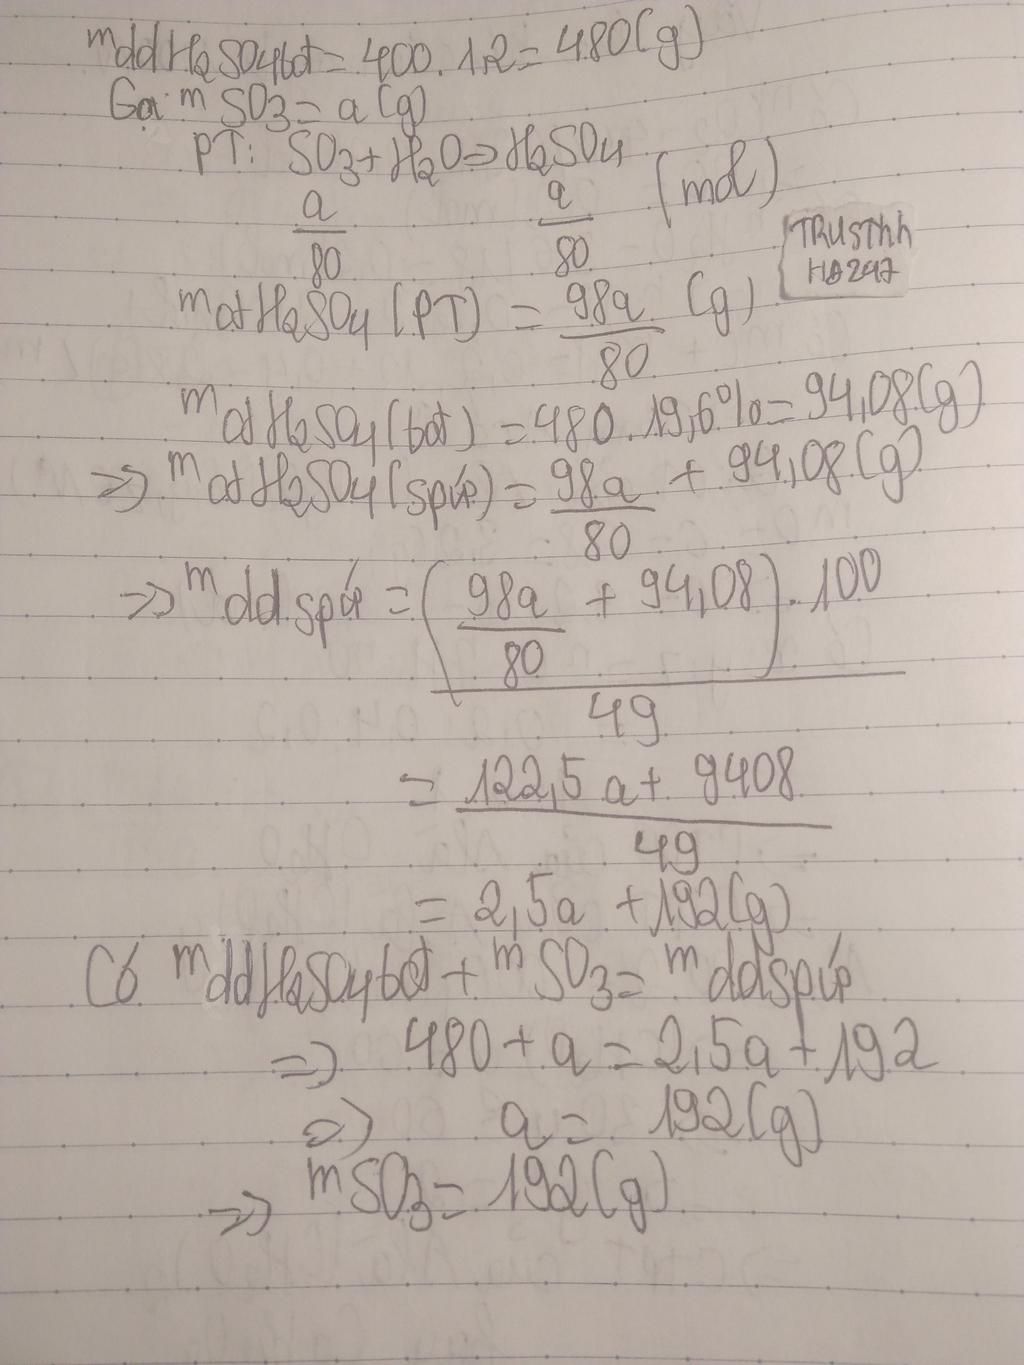 mddH2SO4bđ = 400.1,2 = 480(g)
Gọi mSO3 = a(g)
PT: SO3 + H2O => H2SO4
a/80 a/80 (mol)
TRUSThh
HD247
mctH2SO4(PT) = 98a/80 (g)
mctH2SO4(bđ) = 480.19,6% = 94,08(g)
=> mctH2SO4(spứ) = 98a/80 + 94,08(g)
=> mddspứ = (98a/80 + 94,08).100/49
= 122,5a + 9408/49
= 2,5a + 192(g)
Có mddH2SO4bđ + mSO3 = mddspứ
=> 480 + a = 2,5a + 192
=> a = 192(g)
=> mSO3 = 192(g)